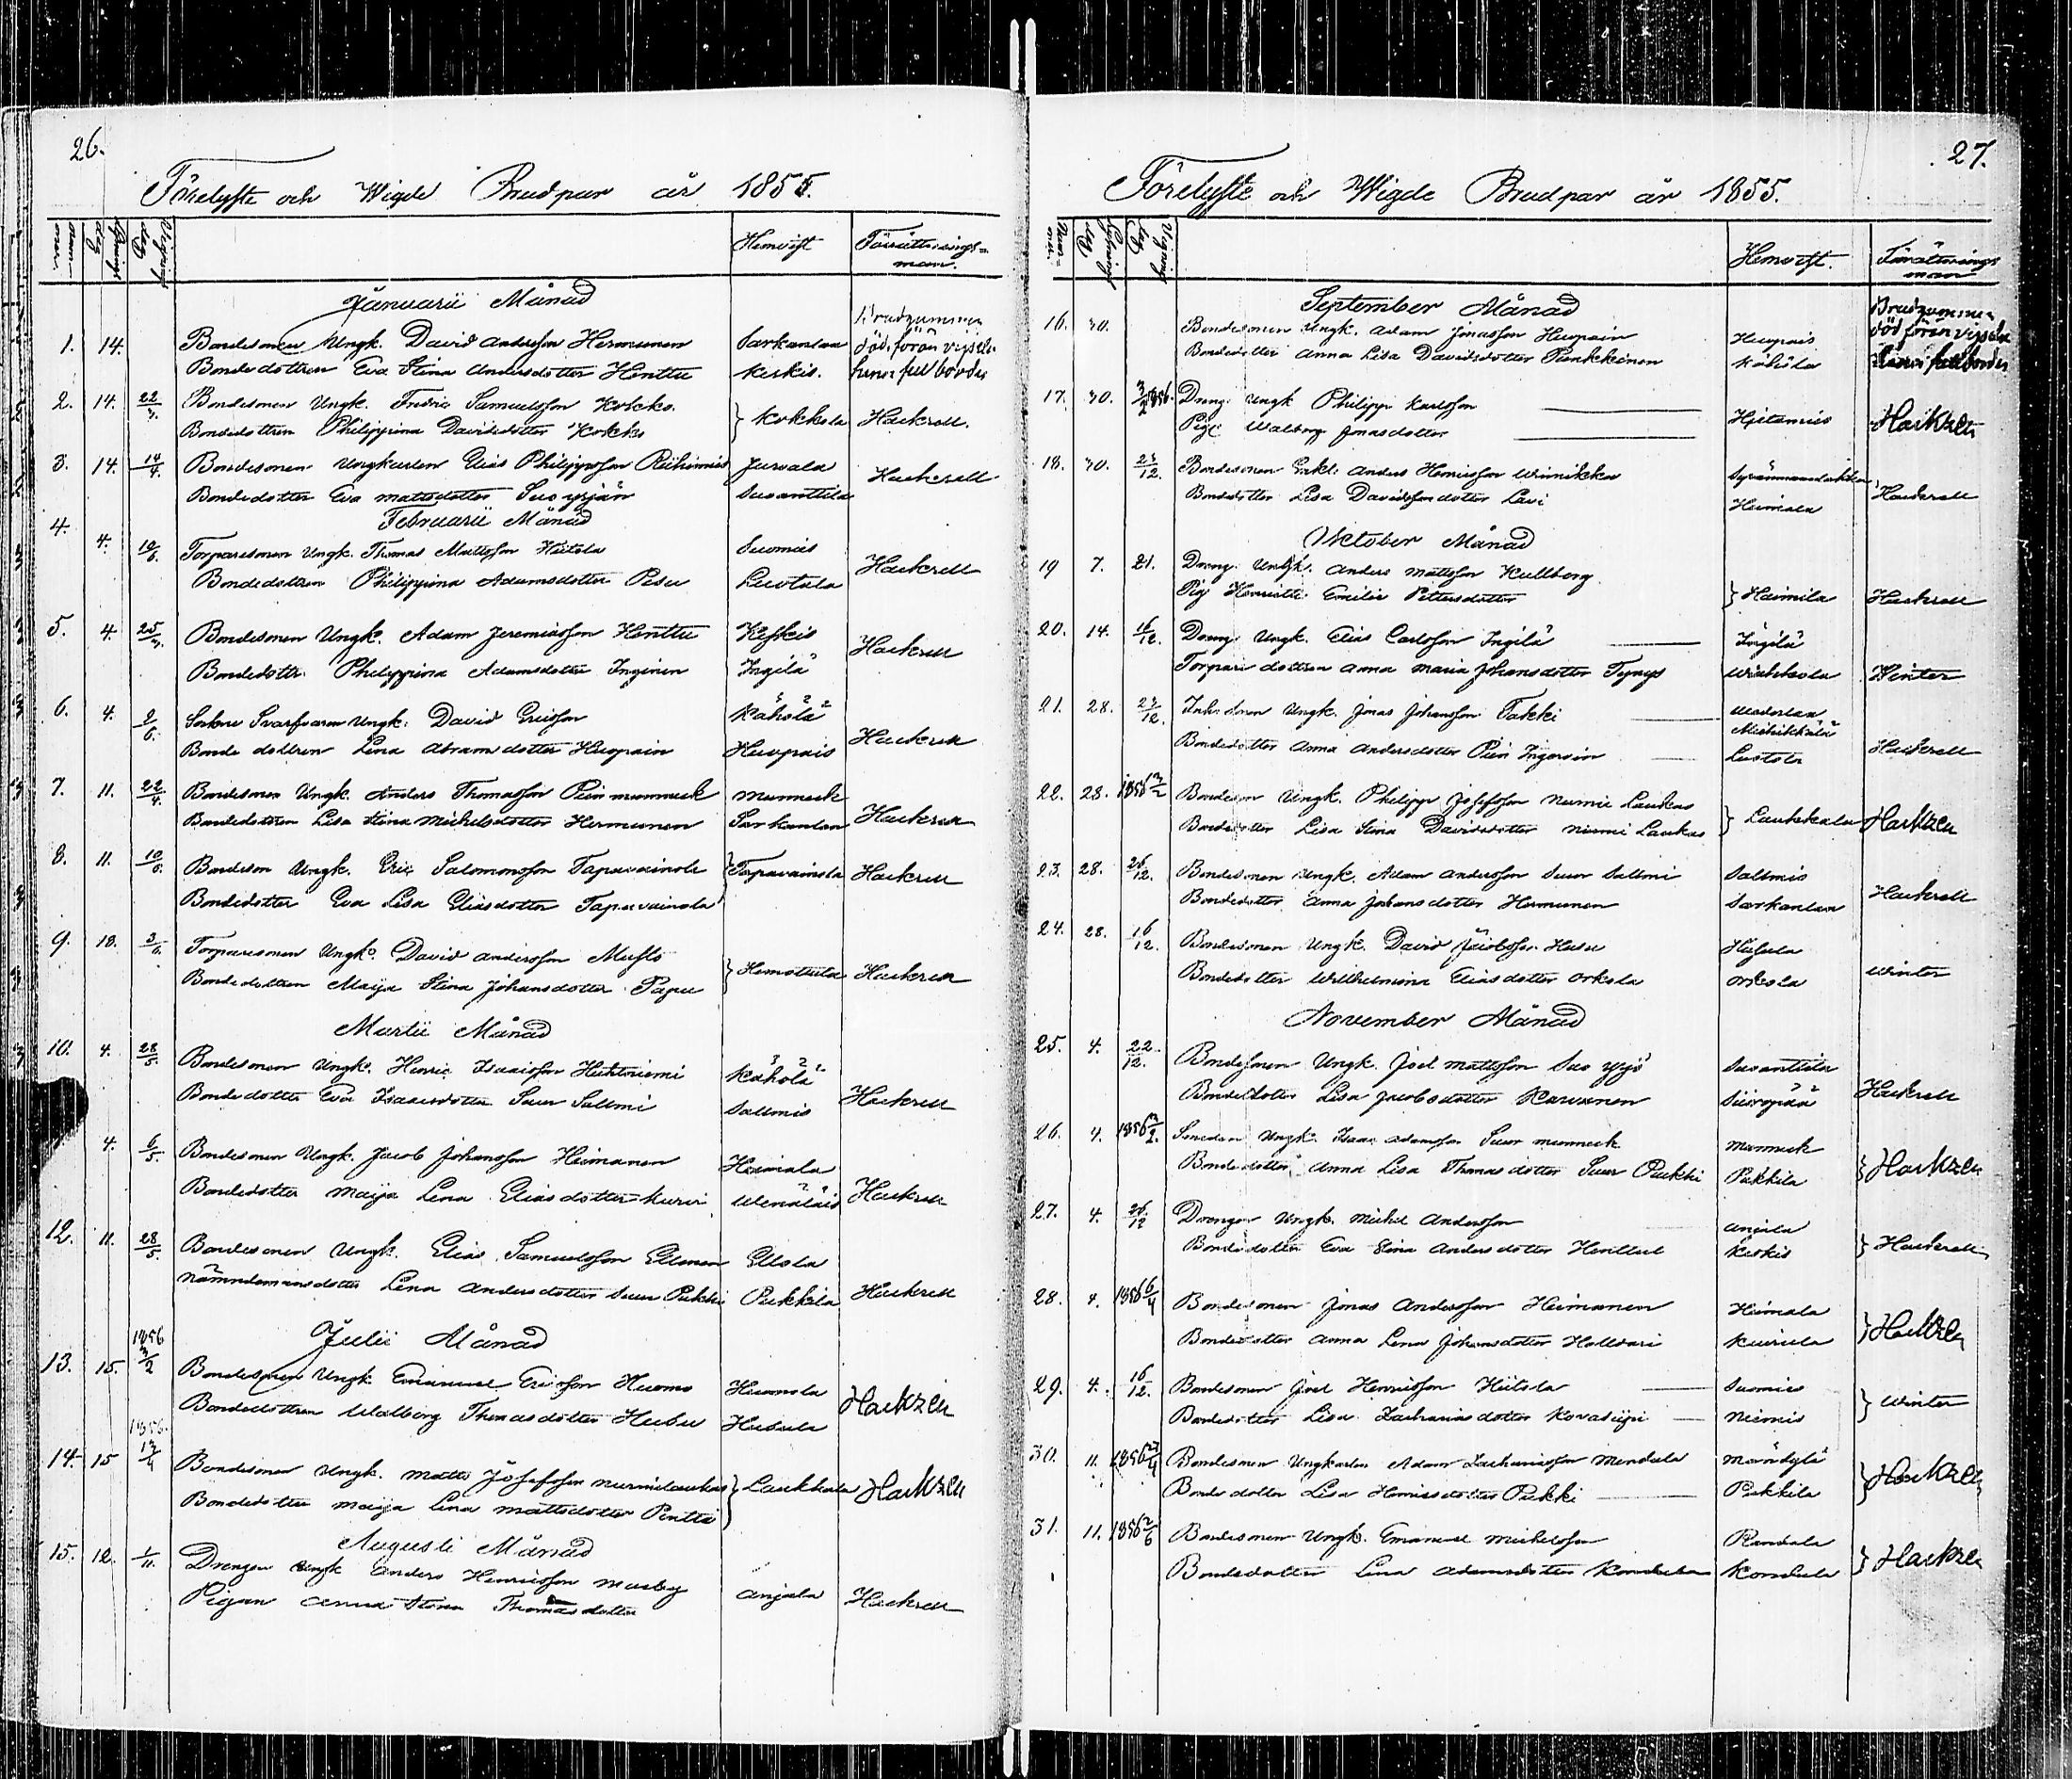 26.
Förelyste och Wigde Brudpar år 1855.
Nummer. Lysnings dag Vignings dag Hemvist Förrättningsman.
Januarii Månad
1. 14. Bondesonen Ungk. David Andersson Hermunen Sarkanlax Brudgummen
Bondedottren Eva Stina Andersdotter Henttu Keskis. död förän vigseln
hunnit fullbordas
2. 14. 22/3. Bondesonen Ungk. Fredric Samuelsson Kokko.
Bondedottren Philippina Davidsdotter Kokko } Kokkola Hackzell.
3. 14. 14/4. Bondesonen Ungkarlen Elias Philippsson Riihimies Jurvala
Bondedotter Eva Mattsdotter Suo yrjän Suoanttila Hackzell
Februarii Månad
4. 4. 10/6. Torparesonen Ungk. Thomas Mattsson Hütola Suomis
Bondedottren Philippina Adamsdotter Pesu Luotola Hackzell
5. 4 25/3. Bondesonen Ungk. Adam Jeremiasson Henttu Keskis
Bondedottr. Philippina Adamsdotter Inginen Ingilä Hackzell
6. 4. 2/6. Svarfvaren Ungk. David Ericsson Kähölä
Bonde dottren Lena Abramsdotter Huopain Huopais Hackzell
7. 11. 22/4. Bondesonen Ungk. Anders Thomasson Pien munnuck Munnuck
Bondedottren Lisa Stina Michelsdotter Hermunen Sarkanlax Hackzell
8. 11. 10/6. Bondeson Ungk. Eric Salomonsson Tapavainola
Bondedotter Eva Lisa Eliasdotter Tapavainola } Tapavainola Hackzell
9. 18. 3/6. Torparesonen Ungk. David Andersson Muflo
Bondedottren Maija Stina Johansdotter Papu } Hemottula Hackzell
Martii Månad
10. 4. 28/5. Bondesonen Ungk. Henric Isaacsson Huhtiniemi Kähölä
Bondedotter Eva Isaacsdotter Suur Sallmi Sallmis Hackzell
4. 6/5. Bondesonen Ungk. Jacob Johansson Heimanen Heimala
Bondedotter Maija Lena Eliasdotter Kurvi Wenäläis Hackzell
12. 11. 28/5. Bondesonen Ungk. Elias Samuelsson Ellonen Ellola
Nämndemansdotter Lena Andersdotter Suur Pukki Pukkila Hackzell
Julii Månad
13. 15. 1856 3/2 Bondesonen Ungk Emanuel Ericsson Huomo Huomola
Bondedottren Walborg Thomasdotter Husu Husula Hackzell
14. 15 1856. 13/4 Bondesonen Ungk. Matts Josefsson Nurmilaukas
Bondedotter Maija Lena Mattsdotter Pentti } Laukkala Hackzell
Augusti Månad
15. 12. 1/11. Drengen Ungk Anders Henricsson Masby
Pigan Anna Stena Thomasdotter Anjala Hackzell
27.
Förelyste och Wigde Brudpar år 1855.
Nummer. Lysnings dag Vignings dag Hemvist. Förrättningsman
September Månad
16. 30. Bondesonen Ungk. Adam Jonasson Huopain Huopais Brudgummen
Bondedotter Anna Lisa Davidsdotter Punkkinen Kähölä död förän vigseln
hunnit fullbordas
17. 30. 3/2 1856. Dreng Ungk Philipp Karlsson
Pige Walborg Jonasdotter Hjetamies Hackzell
18. 30. 23/12. Bondesonen Enkl. Anders Henricsson Winnikka
Bondedotter Lisa Davidssondotter Lavi Heimala Hackzell
Oktober Månad
19 7. 21. Dreng Ungk. Anders Mattsson Kullberg
Pig Henrietta Emilie Pettersdotter } Heimila Hackzell
20. 14. 16/12. Dreng Ungk. Elias Carlsson Ingilä Ingilä
Torpare dottren Anna Maria Johansdotter Tynys Winter
21. 28. 23/12. Inh. sonen Ungk. Jonas Johansson Takki
Bondedotter Anna Andersdotter Pien Ingeroin Luotola Hackzell
22. 28. 1856 13/2 Bondeson Ungk. Philipp Josefsson Nurmi Laukas
Bondedotter Lisa Stina Davidsdotter Nurmi Laukas } Laukkala Hackzell
23. 28. 26/12. Bondesonen Ungk. Adam Andersson Suur Sallmi Sallmis
Bondedotter Anna Johansdotter Hermunen Sarkanlax Hackzell
24. 28. 16/12. Bondesonen Ungk. David Jacobsson Husu Husula
Bondedotter Wilhelmina Eliasdotter Orkola Orkola Winter
November Månad
25. 4. 22/12. Bondesonen Ungk. Joel Mattsson Suo yrjö Suoanttila
Bondedotter Lisa Jacobsdotter Karvanen Hackzell
26. 4. 1856 13/2. Smeden Ungk. Isaac Adamsson Suur munnuck Munnuck
Bondedotter Anna Lisa Thomasdotter Suur Pukki Pukkila } Hackzell
27. 4. 26/12 Drengen Ungk. Michel Andersson Anjala
Bondedotter Eva Stina Andersdotter Henttu Keskis } Hackzell
28. 4. 1856 6/4 Bondesonen Jonas Andersson Heimanen Heimala
Bondedotter Anna Lena Johansdotter Hallvari Kurvila } Hackzell
29. 4. 16/12. Bondesonen Joel Henricsson Hütola Suomis
Bondedotter Lisa Zachariasdotter Kovasiipi Niemis } Winter
30. 11. 1856 27/4 Bondesonen Ungkarlen Adam Zachariasson Mendola Mändylä
Bonde dotter Lisa Henricsdotter Pukki Pukkila } Hackzell
31. 11. 1856 2/6 Bondesonen Ungk. Emanuel Michelsson Randala
Bondedotter Lena Adamsdotter Kondula Kondula } Hackzell